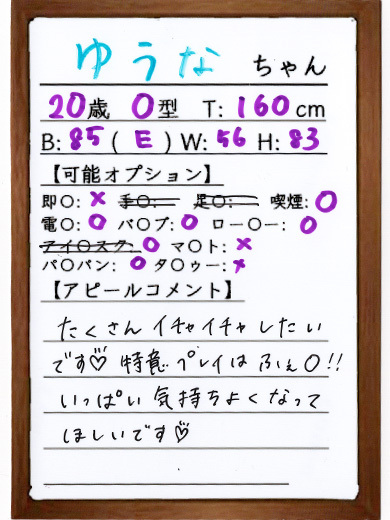 ゆうな ちゃん
20歳 O型 T:160cm
B:85(E)W:56 H:83
【可能オプション】
即〇:× 手〇: 足〇: 喫煙:〇
電〇:〇 バ〇ブ:〇 ロー〇ー:〇
アイ〇スク:〇 マ〇ト:×
パ〇パン:〇 タ〇ゥー:×
【アピールコメント】
たくさんイチャイチャしたい
です♡ 得意プレイはふぇ〇!!
いっぱい気持ちよくなって
ほしいです♡